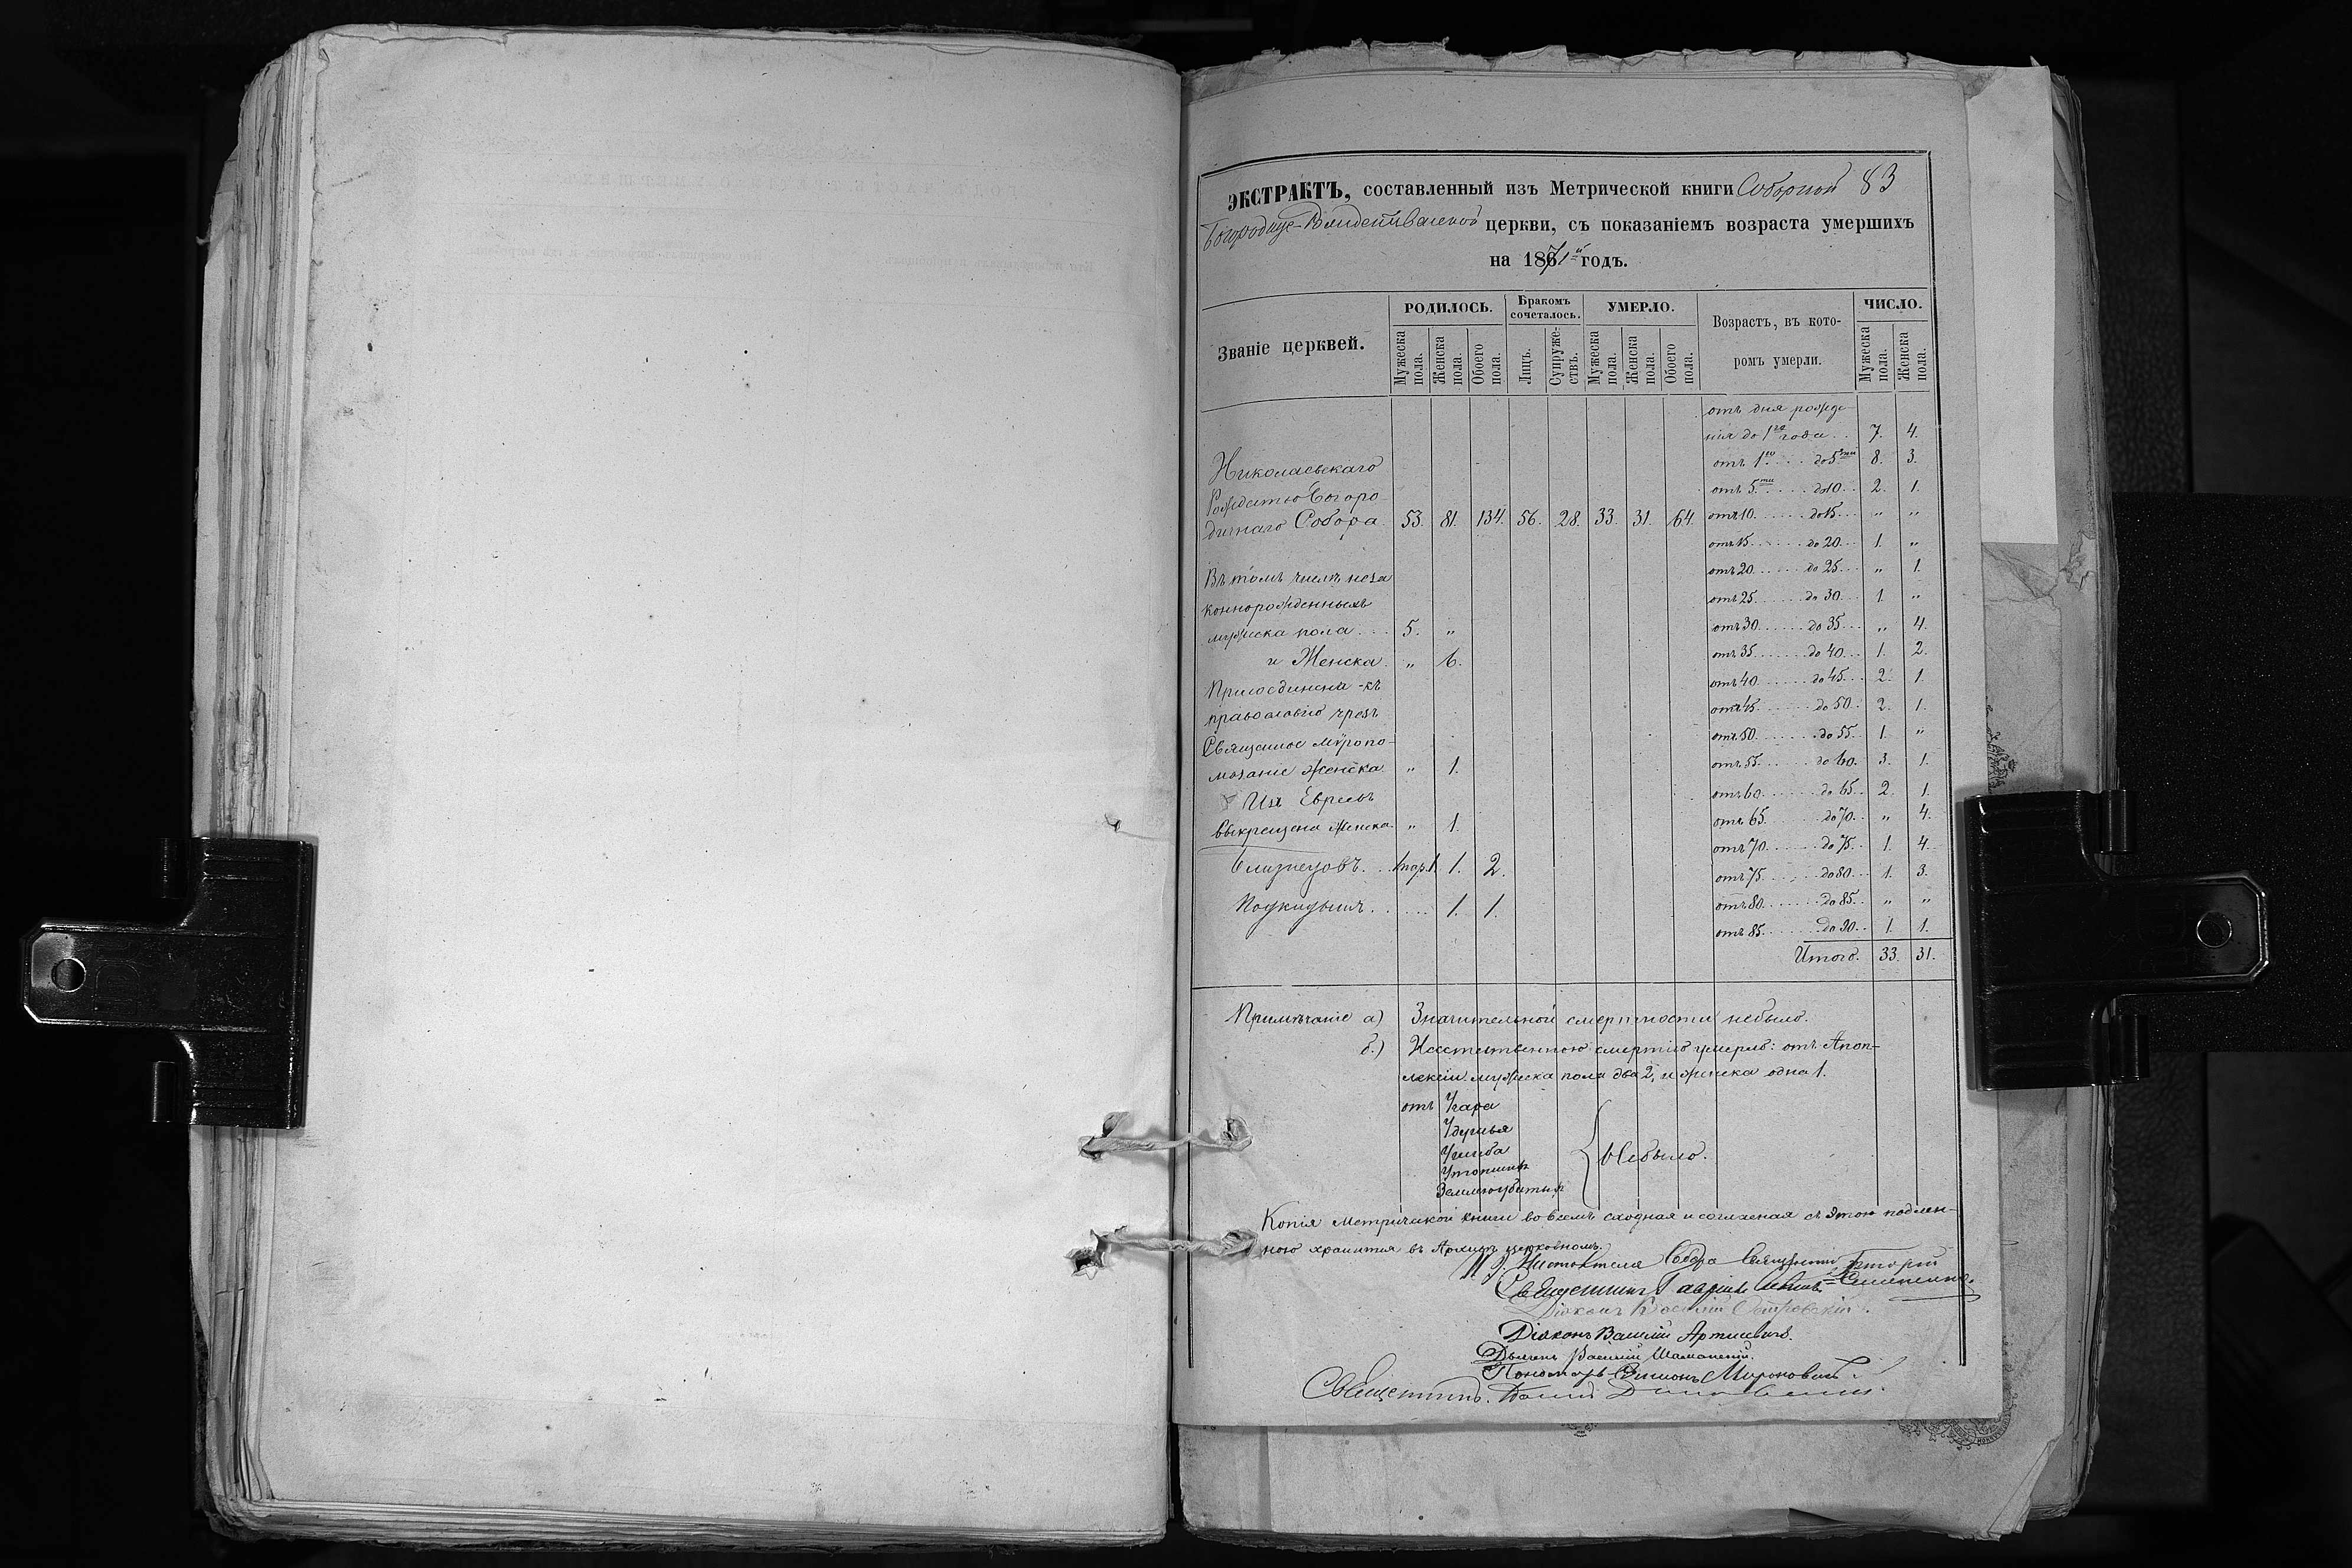 ЭКСТРАКТЪ, составленный изъ Метрической книги Соборной 83
Богородице-Рождественской церкви, съ показаніемъ возраста умершихъ
на 1871й годъ.
Званіе церквей. РОДИЛОСЬ. Бракомъ сочеталось. УМЕРЛО. Возрастъ, въ которомъ умерли. ЧИСЛО.
Мужеска пола. Женска пола. Обоего пола. Лицъ. Супружествъ. Мужеска пола. Женска пола. Обоего пола. Мужеска пола. Женска пола.
Николаевскаго
Рождество Богоро-
дичнаго Собора 53. 81. 134. 56. 28. 33. 31. 64.
Въ томъ числѣ неза
коннорожденныхъ
мужеска пола 5. „
и Женска. „ 6.
Присоединена къ
православію чрезъ
Священное мѵропо-
мазаніе Женска „ 1.
Изъ Евреевъ
выкрещена Женска „ 1.
Близнецовъ 1 пар. 1. 1. 2.
Подкидышъ 1. 1.
отъ дня рожде-
нія до 1го года 7. 4.
отъ 1го до 5ти 8. 3.
отъ 5ти до 10 2. 1.
отъ 10 до 15 „ „
отъ 15 до 20 1. „
отъ 20 до 25 „ 1.
отъ 25 до 30 1. „
отъ 30 до 35 „ 4.
отъ 35 до 40 1. 2.
отъ 40 до 45 2. 1.
отъ 45 до 50 2. 1.
отъ 50 до 55 1. „
отъ 55 до 60 3. 1.
отъ 60 до 65 2. 1.
отъ 65 до 70 „ 4.
отъ 70 до 75 1. 4.
отъ 75 до 80 1. 3.
отъ 80 до 85 „ „
отъ 85 до 90 1. 1.
Итого. 33. 31.
Примѣчаніе а) Значительной смертности небыло.
б.) Неестественною смертію умерло: отъ Апоп-
лексіи мужеска пола два 2, и женска одна 1.
отъ Угара
Удушья
Ушиба
Утопшихъ
Землею убитыхъ
Небыло.
Копія Метрической книги во всемъ сходная и согласная съ этою подлен-
ною хранится въ Архивѣ церковномъ.
Настоятеля Собора Священникъ
Священникъ Гавріилъ
Діаконъ Василій Островскій.
Діаконъ Василій
Дьячекъ Василій Шаманскій.
Пономарь Симонъ Мироновичъ.
Священникъ